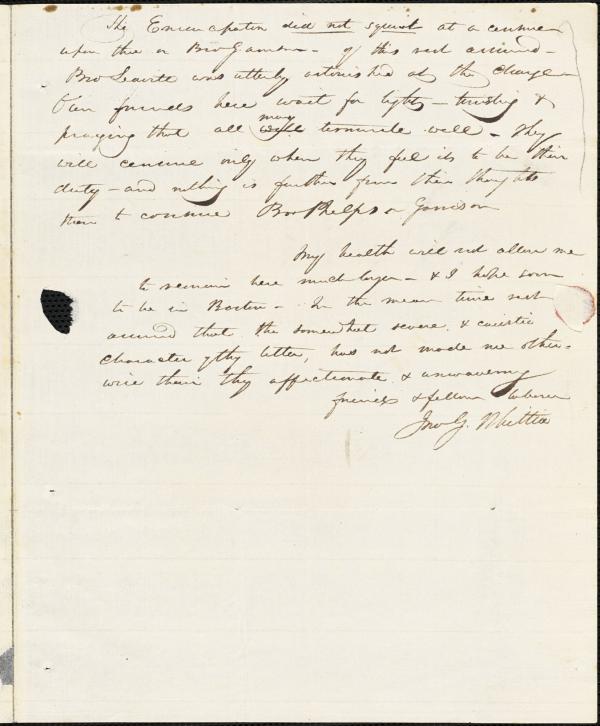 The Emancipator did not squint at a censure
upon thee or Bro Garrison – of this rest assured –
Bro Leavitt was utterly astonished at the charge –
Our friends here wait for light – trusting &
praying that all may will terminate well – They
will censure only when they feel it to be their
duty – and nothing is further from their thoughts
than to censure Bro Phelps or Garrison
My health will not allow me
to remain here much longer – & I hope soon
to be in Boston – In the mean time rest
assured that the somewhat severe & caustic
character of thy letter, has not made me other-
wise than thy affectionate & unwavering
friend & fellow laborer
Jno G. Whittier